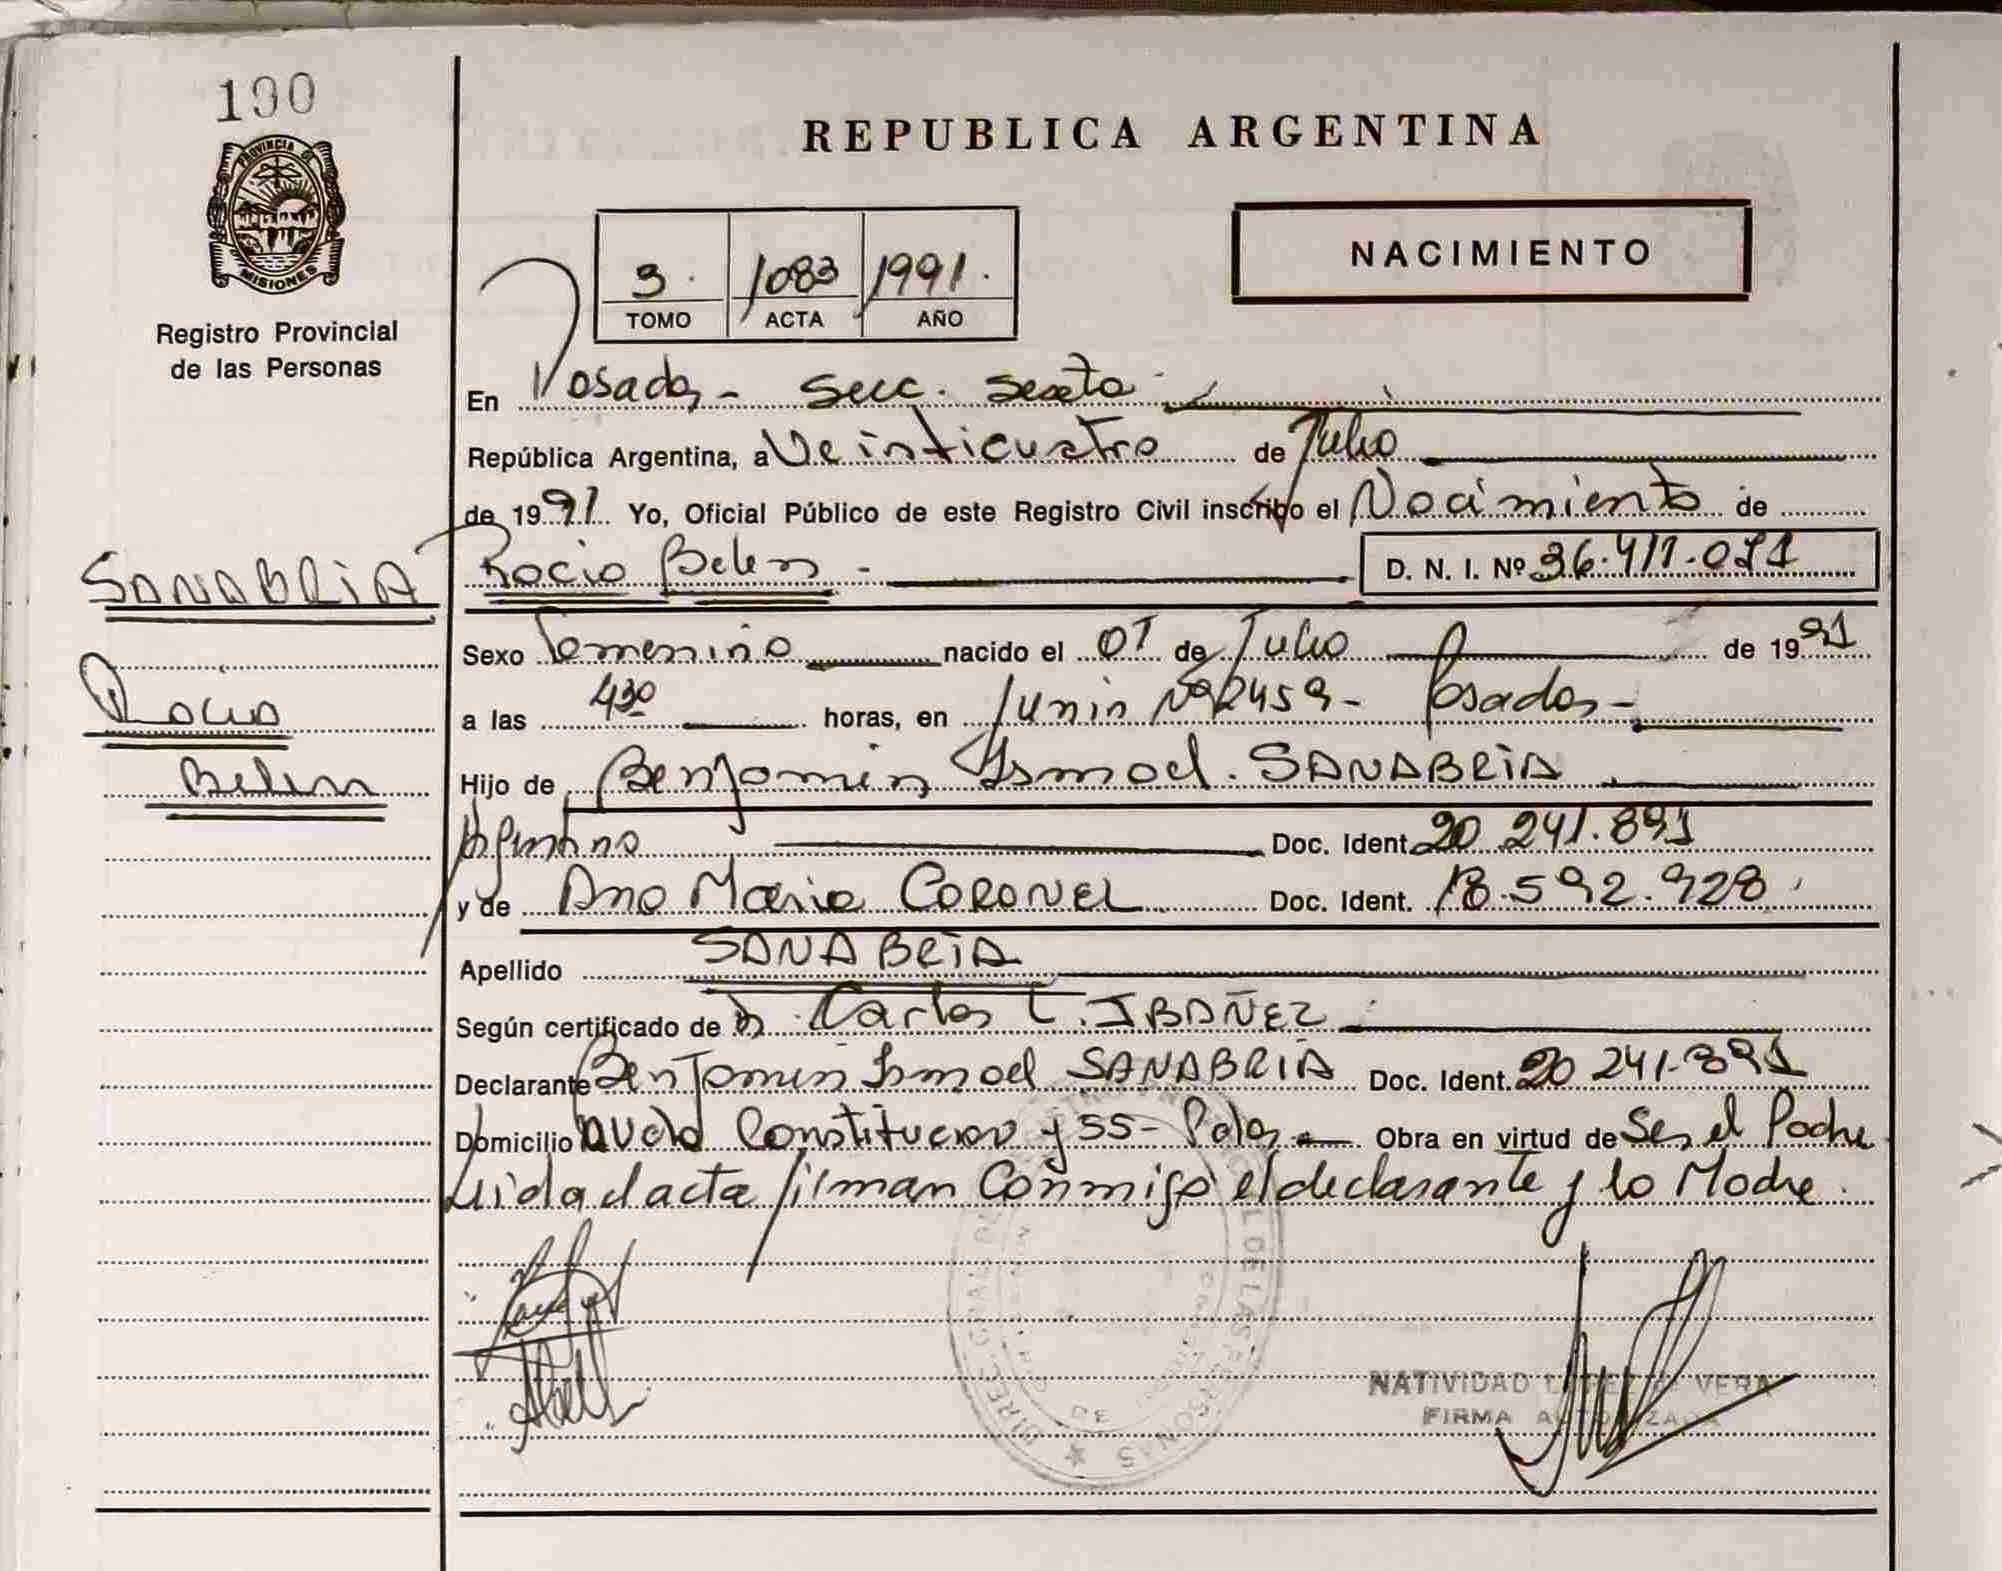 190
PROVINCIA DE
MISIONES
Registro Provincial
de las Personas
REPUBLICA ARGENTINA
NACIMIENTO
3. 1083 1991.
TOMO ACTA AÑO
En Posadas - Secc. Sexta
República Argentina, a Veinticuatro de Julio
de 1991 Yo, Oficial Público de este Registro Civil inscribo el Nacimiento de
SANABRiA
Rocio Belen - D. N. I. Nº 36.411.071
Sexo Femenino nacido el 07 de Julio de 1991
Rocio
a las 430 horas, en Junin Nº 2459 - Posadas -
Belen
Hijo de Benjamin Ismael. SANABRiA
Argentino Doc. Ident. 20.241.891
y de Ana Maria CORONEL Doc. Ident. 18.592.928
Apellido SANABRiA
Según certificado de Carlos L. IBAÑEZ
Declarante Benjamin Ismael SANABRiA Doc. Ident. 20.241.891
Domicilio Avda Constitucion y 55 - Pdas - Obra en virtud de Ser el Padre
Leida el acta firman Conmigo el declarante y la Madre.
NATIVIDAD VERA
FIRMA AUTORIZADA